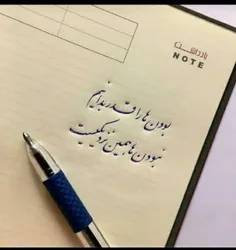 یادداشت
NOTE
بودن ها را قدر بدانیم
نبودن ها همین نزدیکیست